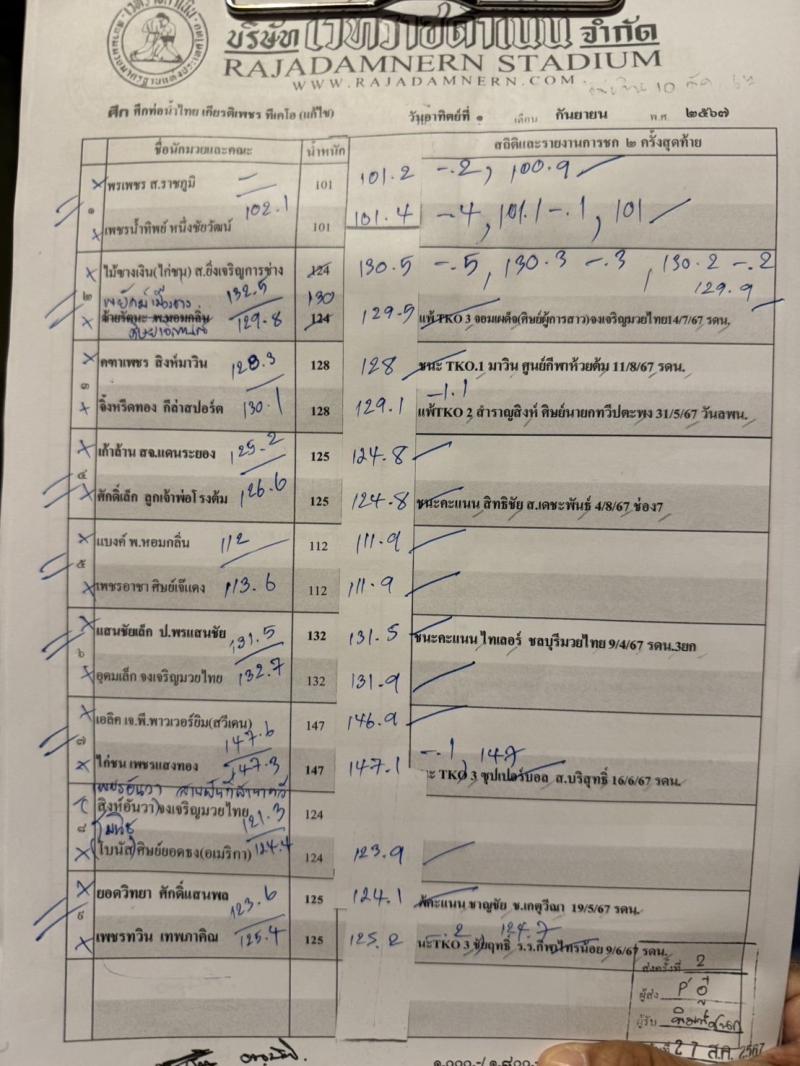 บริษัท เวทีราชดำเนิน จำกัด
RAJADAMNERN STADIUM
WWW.RAJADAMNERN.COM
ศึก ศึกท่อน้ำไทย เกียรติเพชร ทีเคโอ (แก้ไข) วันอาทิตย์ที่ ๑ เดือน กันยายน พ.ศ ๒๕๖๗
ชื่อนักมวยและคณะ น้ำหนัก สถิติและรายงานการชก ๒ ครั้งสุดท้าย
พรเพชร ส.ราชภูมิ — 101 101.2 -.2, 100.9
๑ 102.1
เพชรน้ำทิพย์ หนึ่งชัยวัฒน์ 101 101.4 -4, 101.1 -.1, 101
ไม้ซางเงิน(ไก่ชน) ส.ยิ่งเจริญการช่าง 124 130.5 -.5, 130.3 -.3, 130.2 -.2
๒ 132.5 130 129.9
129.8 124 129.5 แพ้ TKO 3 จอมเผด็จ(ศิษย์ผู้การสาว)จงเจริญมวยไทย14/7/67 รดน.
คฑาเพชร สิงห์มาวิน 128.3 128 128 ชนะ TKO.1 มาวิน ศูนย์กีฬาห้วยต้ม 11/8/67 รดน.
๓ -1.1
จิ้งหรีดทอง กีล่าสปอร์ต 130.1 128 129.1 แพ้TKO 2 สำราญสิงห์ ศิษย์นายกทวีปตะพง 31/5/67 วันลพน.
เก้าล้าน สจ.แดนระยอง 125.2 125 124.8
๔
ศักดิ์เล็ก ลูกเจ้าพ่อโรงต้ม 126.6 125 124.8 ชนะคะแนน สิทธิชัย ส.เดชะพันธ์ 4/8/67 ช่อง7
แบงค์ พ.หอมกลิ่น 112 112 111.9
๕
เพชรอาชา ศิษย์เจ๊แดง 113.6 112 111.9
แสนชัยเล็ก ป.พรแสนชัย 131.5 132 131.5 ชนะคะแนน ไทเลอร์ ชลบุรีมวยไทย 9/4/67 รดน.3ยก
๖
อุดมเล็ก จงเจริญมวยไทย 132.7 132 131.9
เอลิค เจ.พี.พาวเวอร์ยิม(สวีเดน) 147 146.9
๗ 147.6 -.1 147
ไก่ชน เพชรแสงทอง 147.3 147 147.1 TKO 3 ซุปเปอร์บอล ส.บริสุทธิ์ 16/6/67 รดน.
สิงห์อันวา)จงเจริญมวยไทย 121.3 124
๘
(โบนัส)ศิษย์ยอดธง(อเมริกา) 124.4 124 123.9
ยอดวิทยา ศักดิ์แสนพล 123.6 125 124.1 คะแนน ชาญชัย ช.เกตุวีณา 19/5/67 รดน.
๙ .2 124.7
เพชรทวิน เทพภาคิณ 125.4 125 125.2 นะTKO 3 ชัยฤทธิ์ ร.ร.กีฬาไทรน้อย 9/6/67 รดน.
ส่งครั้งที่ 2
ผู้ส่ง
ผู้รับ
27 ส.ค. 2567